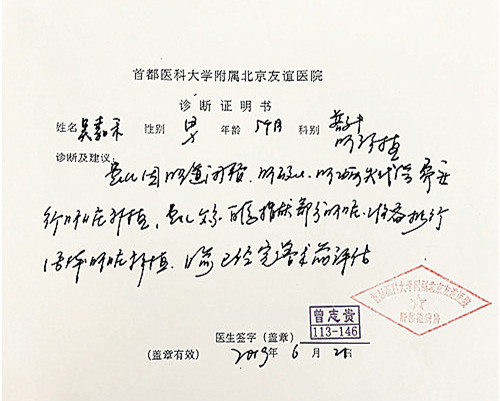 首都医科大学附属北京友谊医院
诊断证明书
姓名 吴嘉禾 性别 男 年龄 5个月 科别 普外
肝移植
诊断及建议: 患儿因胆道闭锁、肝硬化、肝功失代偿 需要
行肝脏移植,患儿父亲 自愿捐献部分肝脏,准备择行
活体肝脏移植,目前已经完善术前评估
曾志贵
医生签字(盖章) 113-146
(盖章有效) 2019年6月21日
首都医科大学附属北京友谊医院